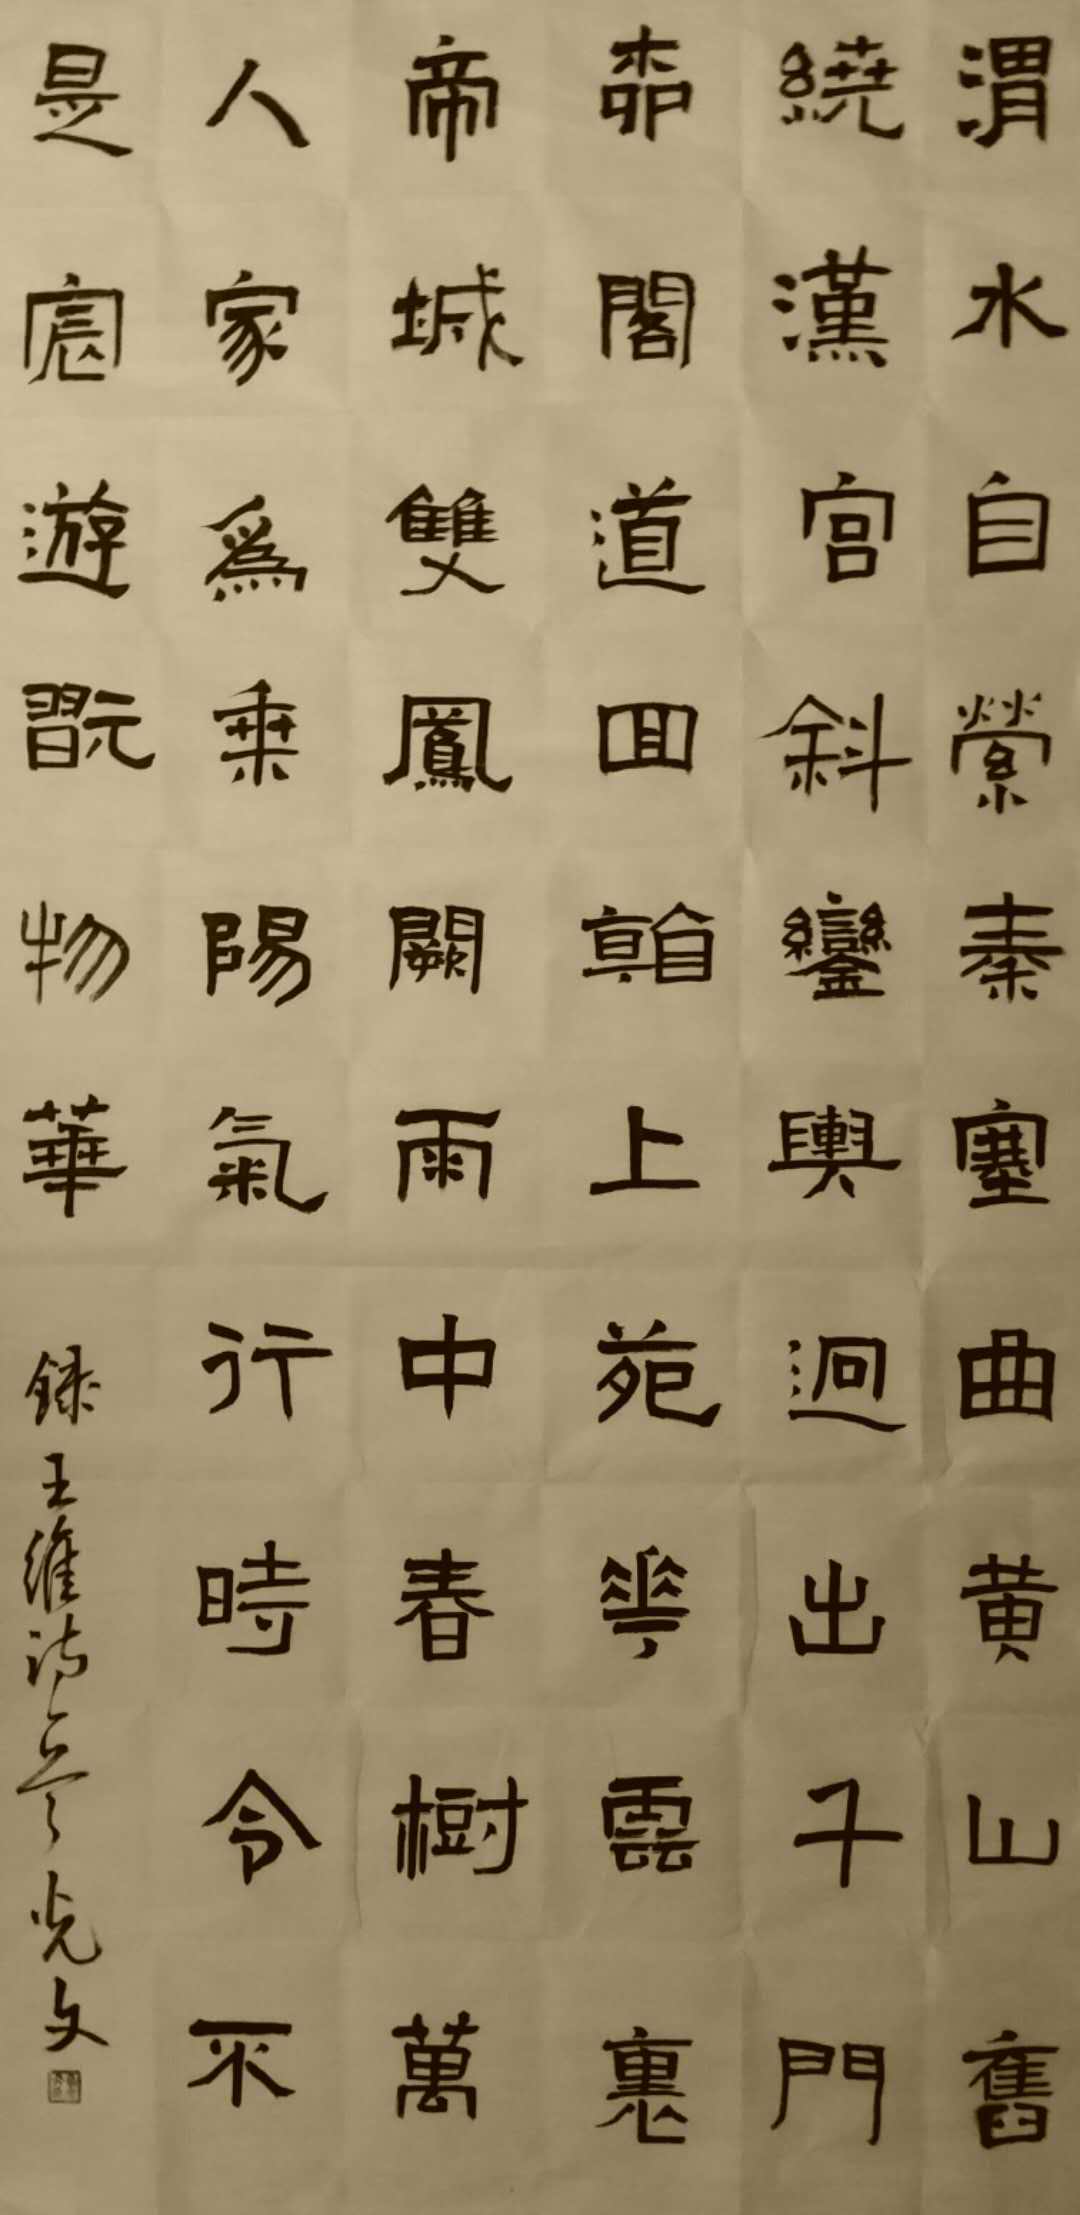 渭水自縈秦塞曲黄山舊
繞漢宮斜鑾輿迥出千門
桺閣道回看上苑花雲裏
帝城雙鳳闕雨中春樹萬
人家爲乘陽氣行時令不
是宸遊翫物華
録王維詩 光文